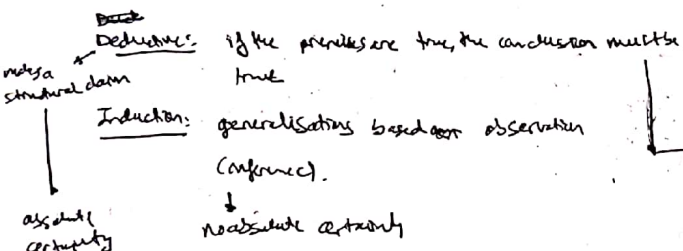 Deductive: if the premises are true, the conclusion must be
true
makes a
structural claim
Induction: generalisations based on observation
(inference).
absolute
certainty
no absolute certainty